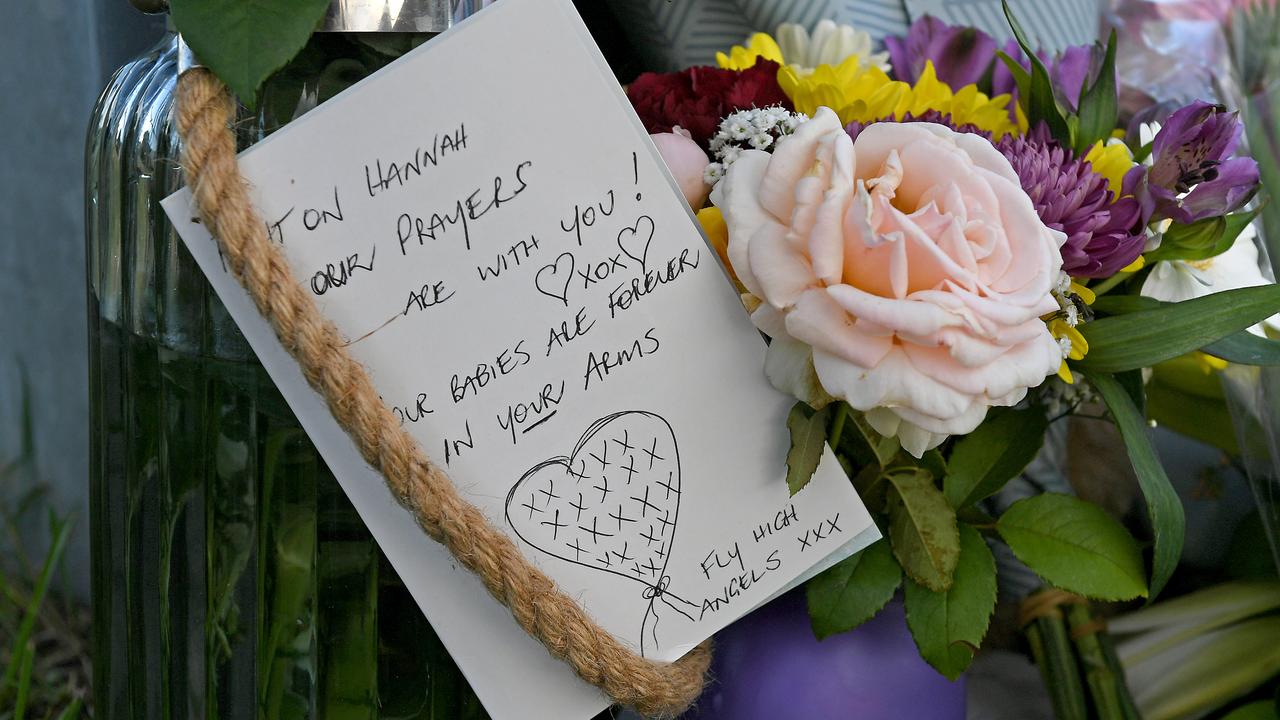 ON HANNAH
OUR PRAYERS
ARE WITH YOU!
♡XOX♡
OUR BABIES ARE FOREVER
IN YOUR ARMS
FLY HIGH
ANGELS XXX